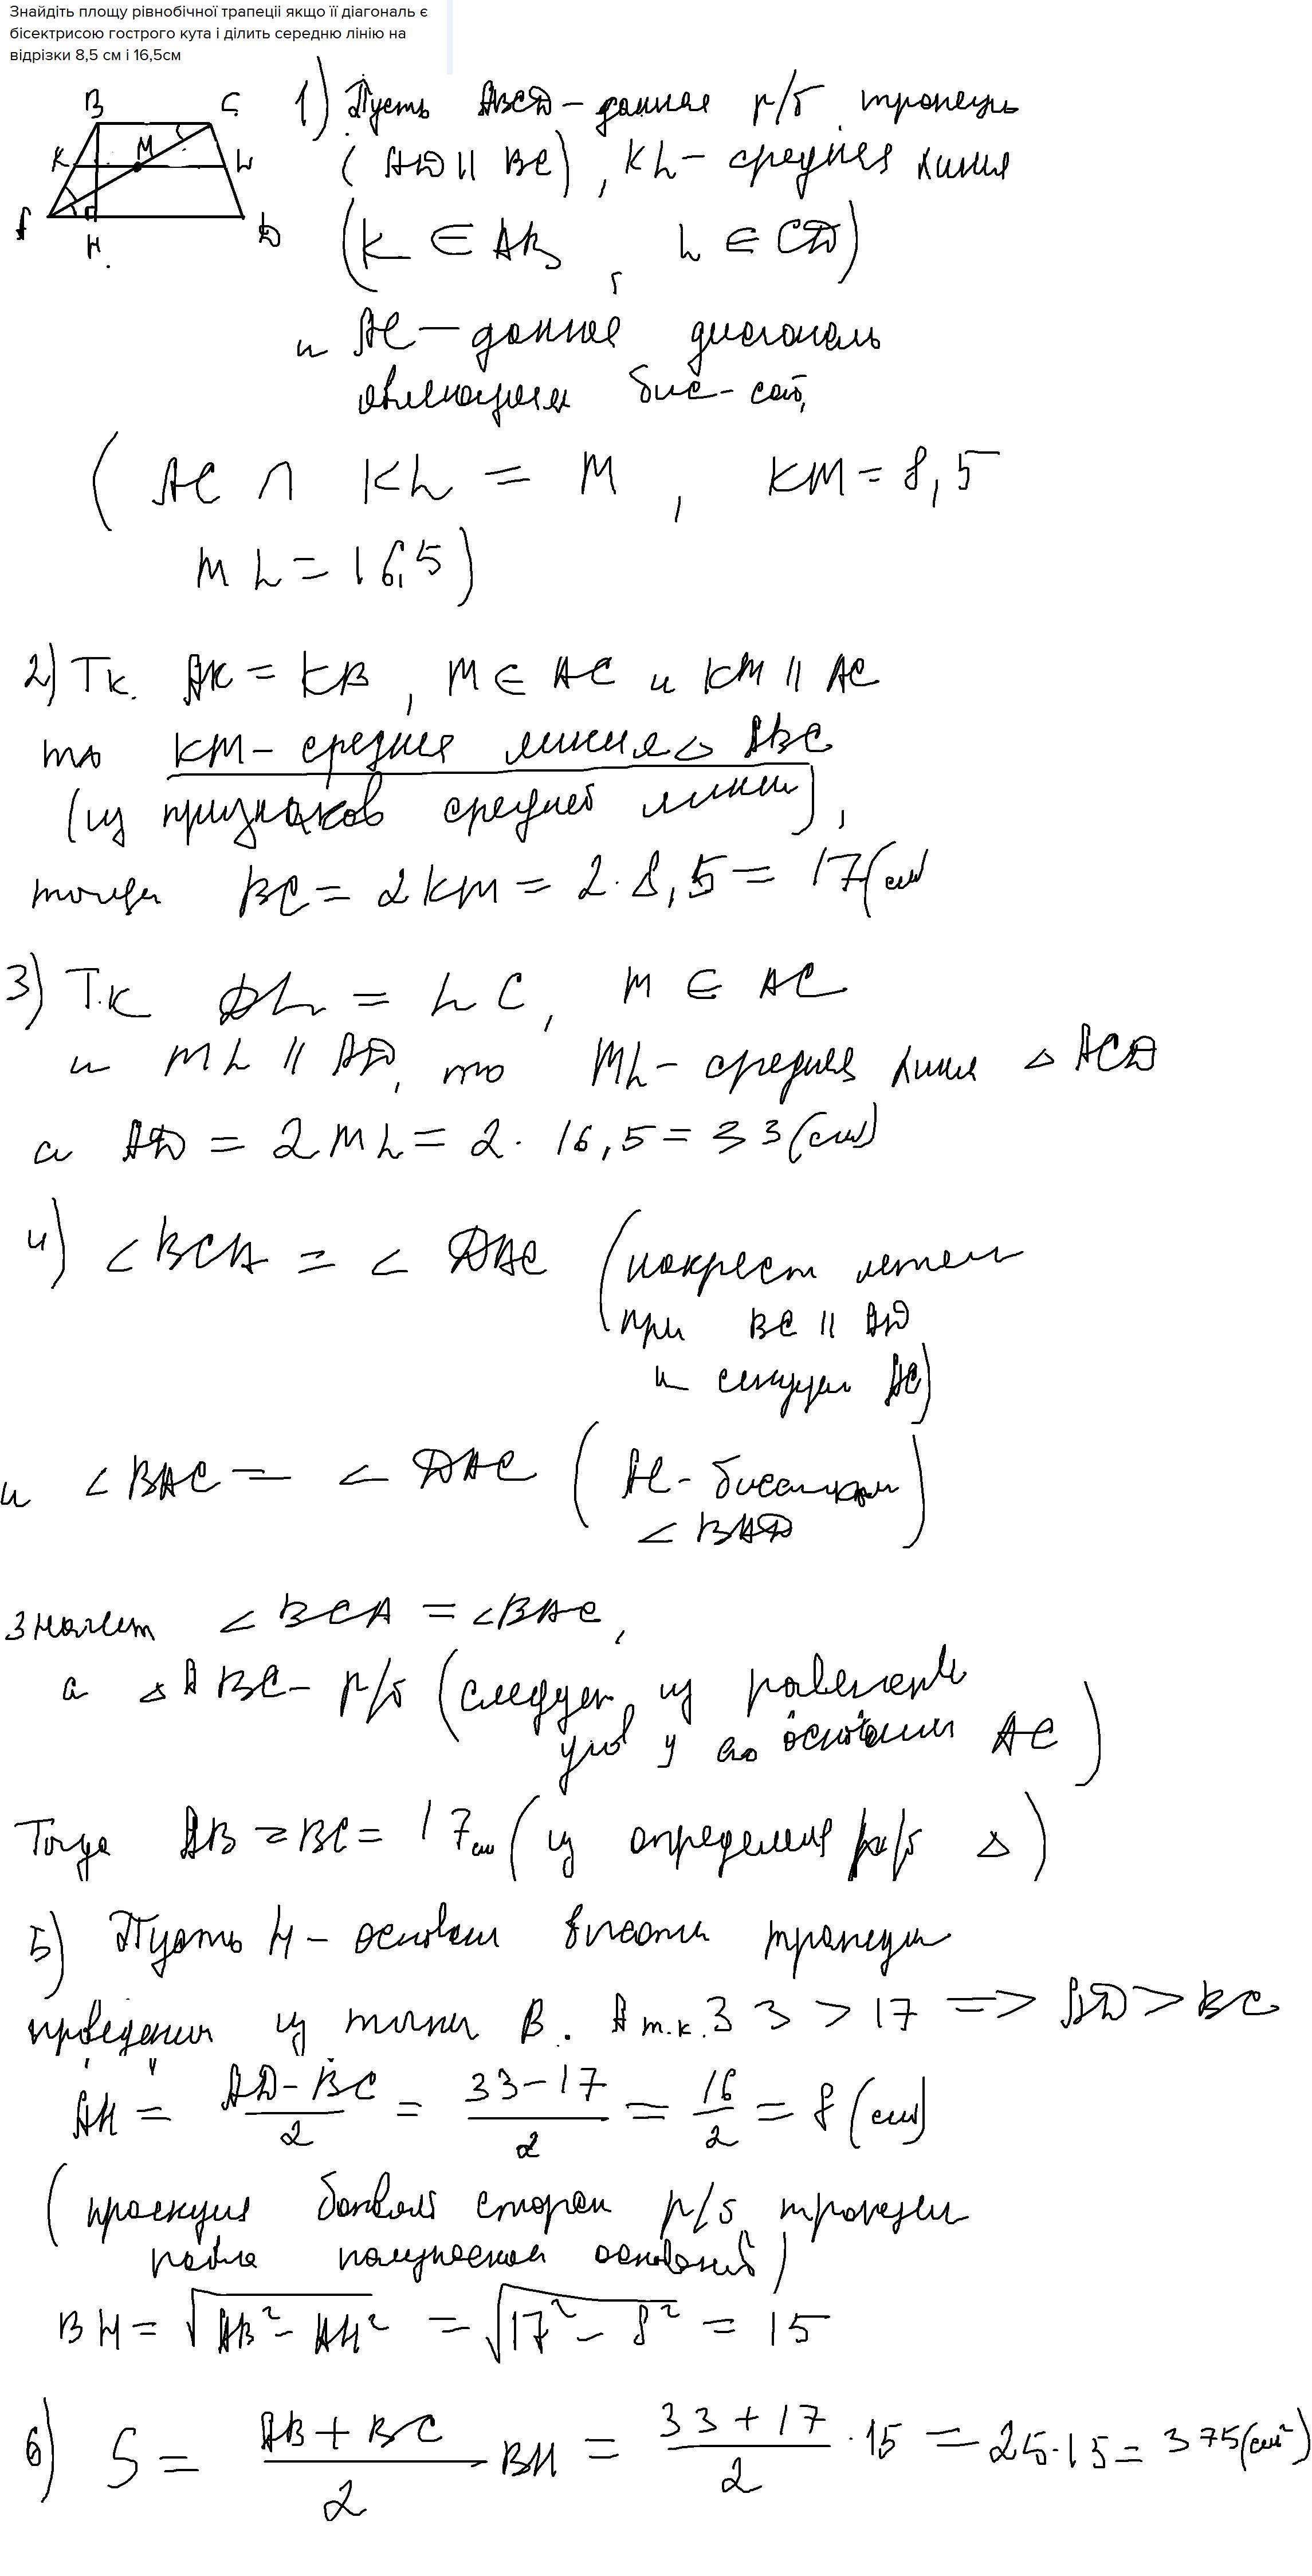 Знайдіть площу рівнобічної трапеції якщо її діагональ є
бісектрисою гострого кута і ділить середню лінію на
відрізки 8,5 см і 16,5см
B C
K M L
A H D
1) Пусть ABCD – данная р/б трапеция
(AD || BC), KL – средняя линия
(K ∈ AB, L ∈ CD)
и AC – данная диагональ
являющаяся бис-сой,
(AC ∩ KL = M, KM = 8,5
ML = 16,5)
2) Тк. AK = KB, M ∈ AC и KM || AC
то KM – средняя линия △ ABC
(из признаков средней линии),
тогда BC = 2KM = 2·8,5 = 17(см)
3) Т.к DL = LC, M ∈ AC
и ML || AD, то ML – средняя линия △ ACD
а AD = 2ML = 2·16,5 = 33(см)
4) ∠BCA = ∠DAC (накрест лежащ
при BC || AD
и секущей AC)
и ∠BAC = ∠DAC (AC – биссектриса
∠BAD)
Значит ∠BCA = ∠BAC,
а △ABC – р/б (следует из равенства
углов у его основания AC)
Тогда AB = BC = 17см (из определения р/б △)
5) Пусть H – основание высоты трапеции
проведения из точки B. А т.к. 33 > 17 => AD > BC
AH = (AD – BC)/2 = (33 – 17)/2 = 16/2 = 8 (см)
(проекция боковой стороны р/б трапеции
равна полуразности оснований)
BH = √(AB² – AH²) = √(17² – 8²) = 15
6) S = (AB + BC)/2 BH = (33 + 17)/2 · 15 = 25·15 = 375(см²)